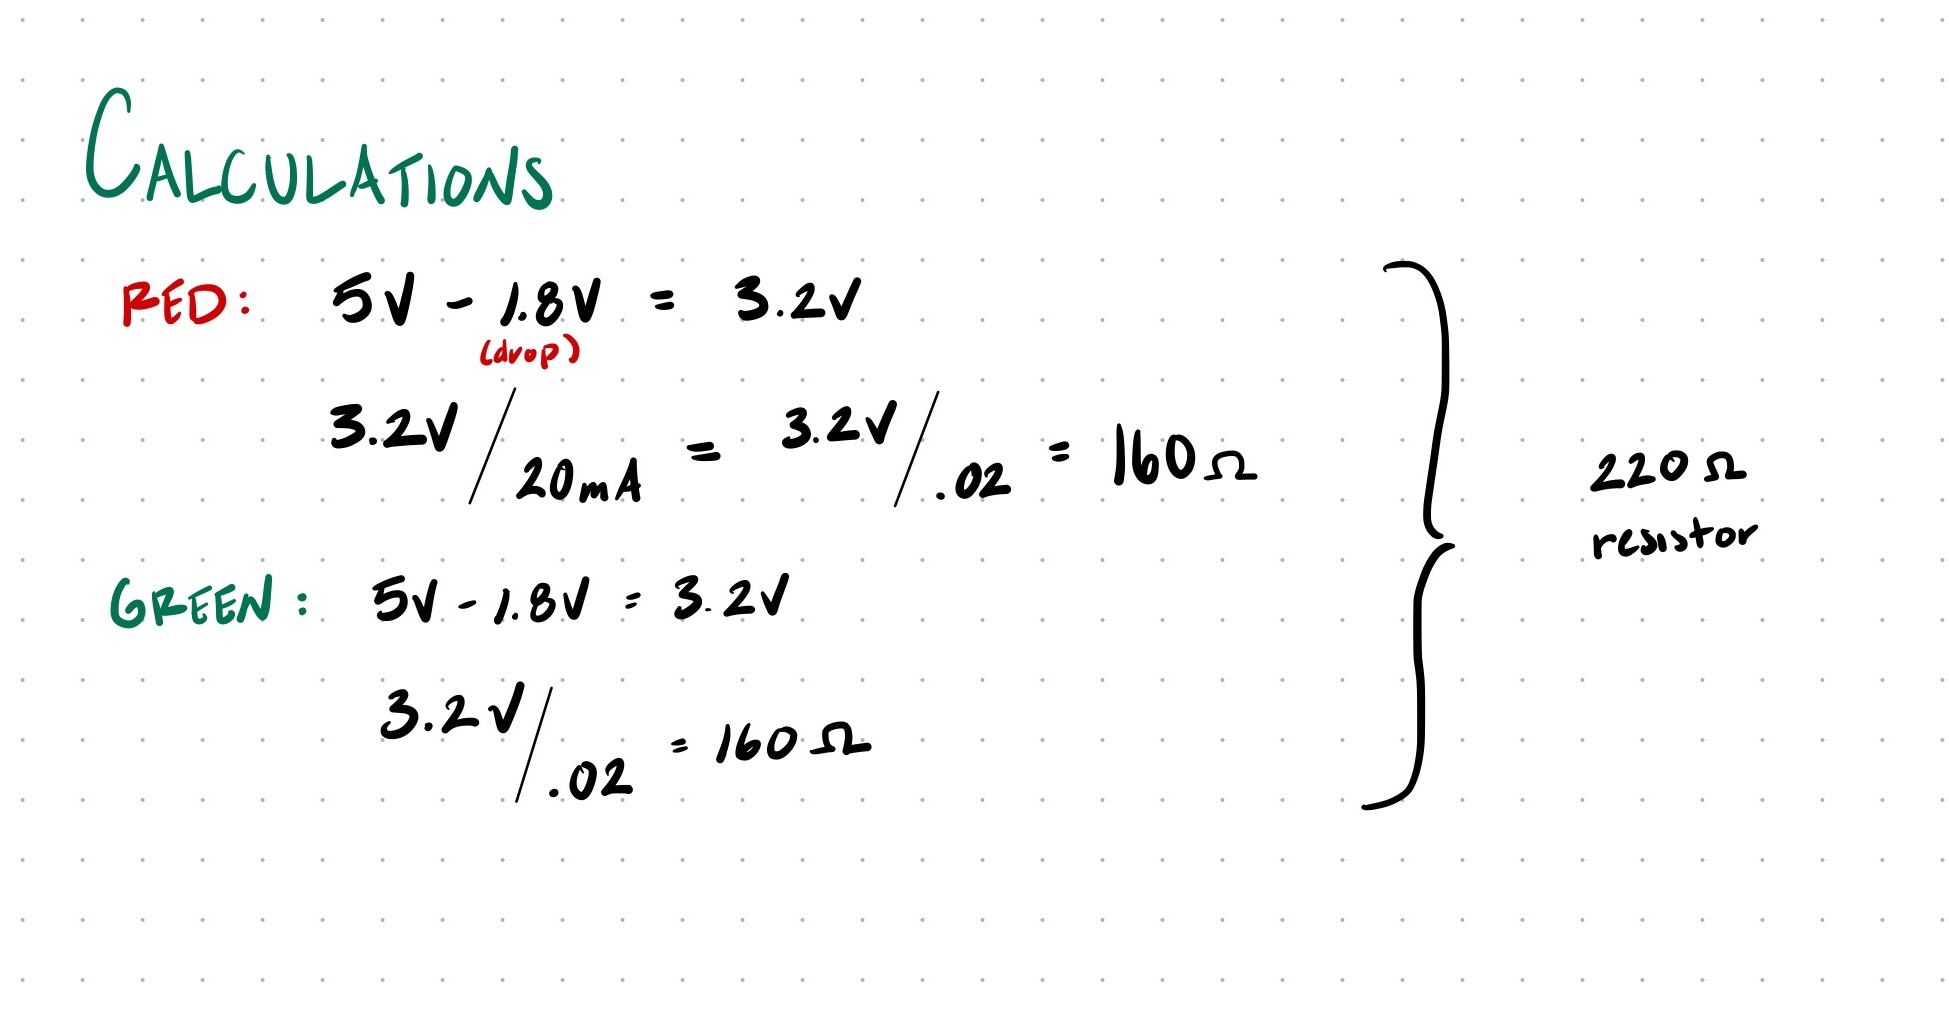 CALCULATIONS
RED: 5V - 1.8V = 3.2V
(drop)
3.2V / 20mA = 3.2V / .02 = 160Ω
GREEN: 5V - 1.8V = 3.2V
3.2V / .02 = 160Ω
220Ω
resistor